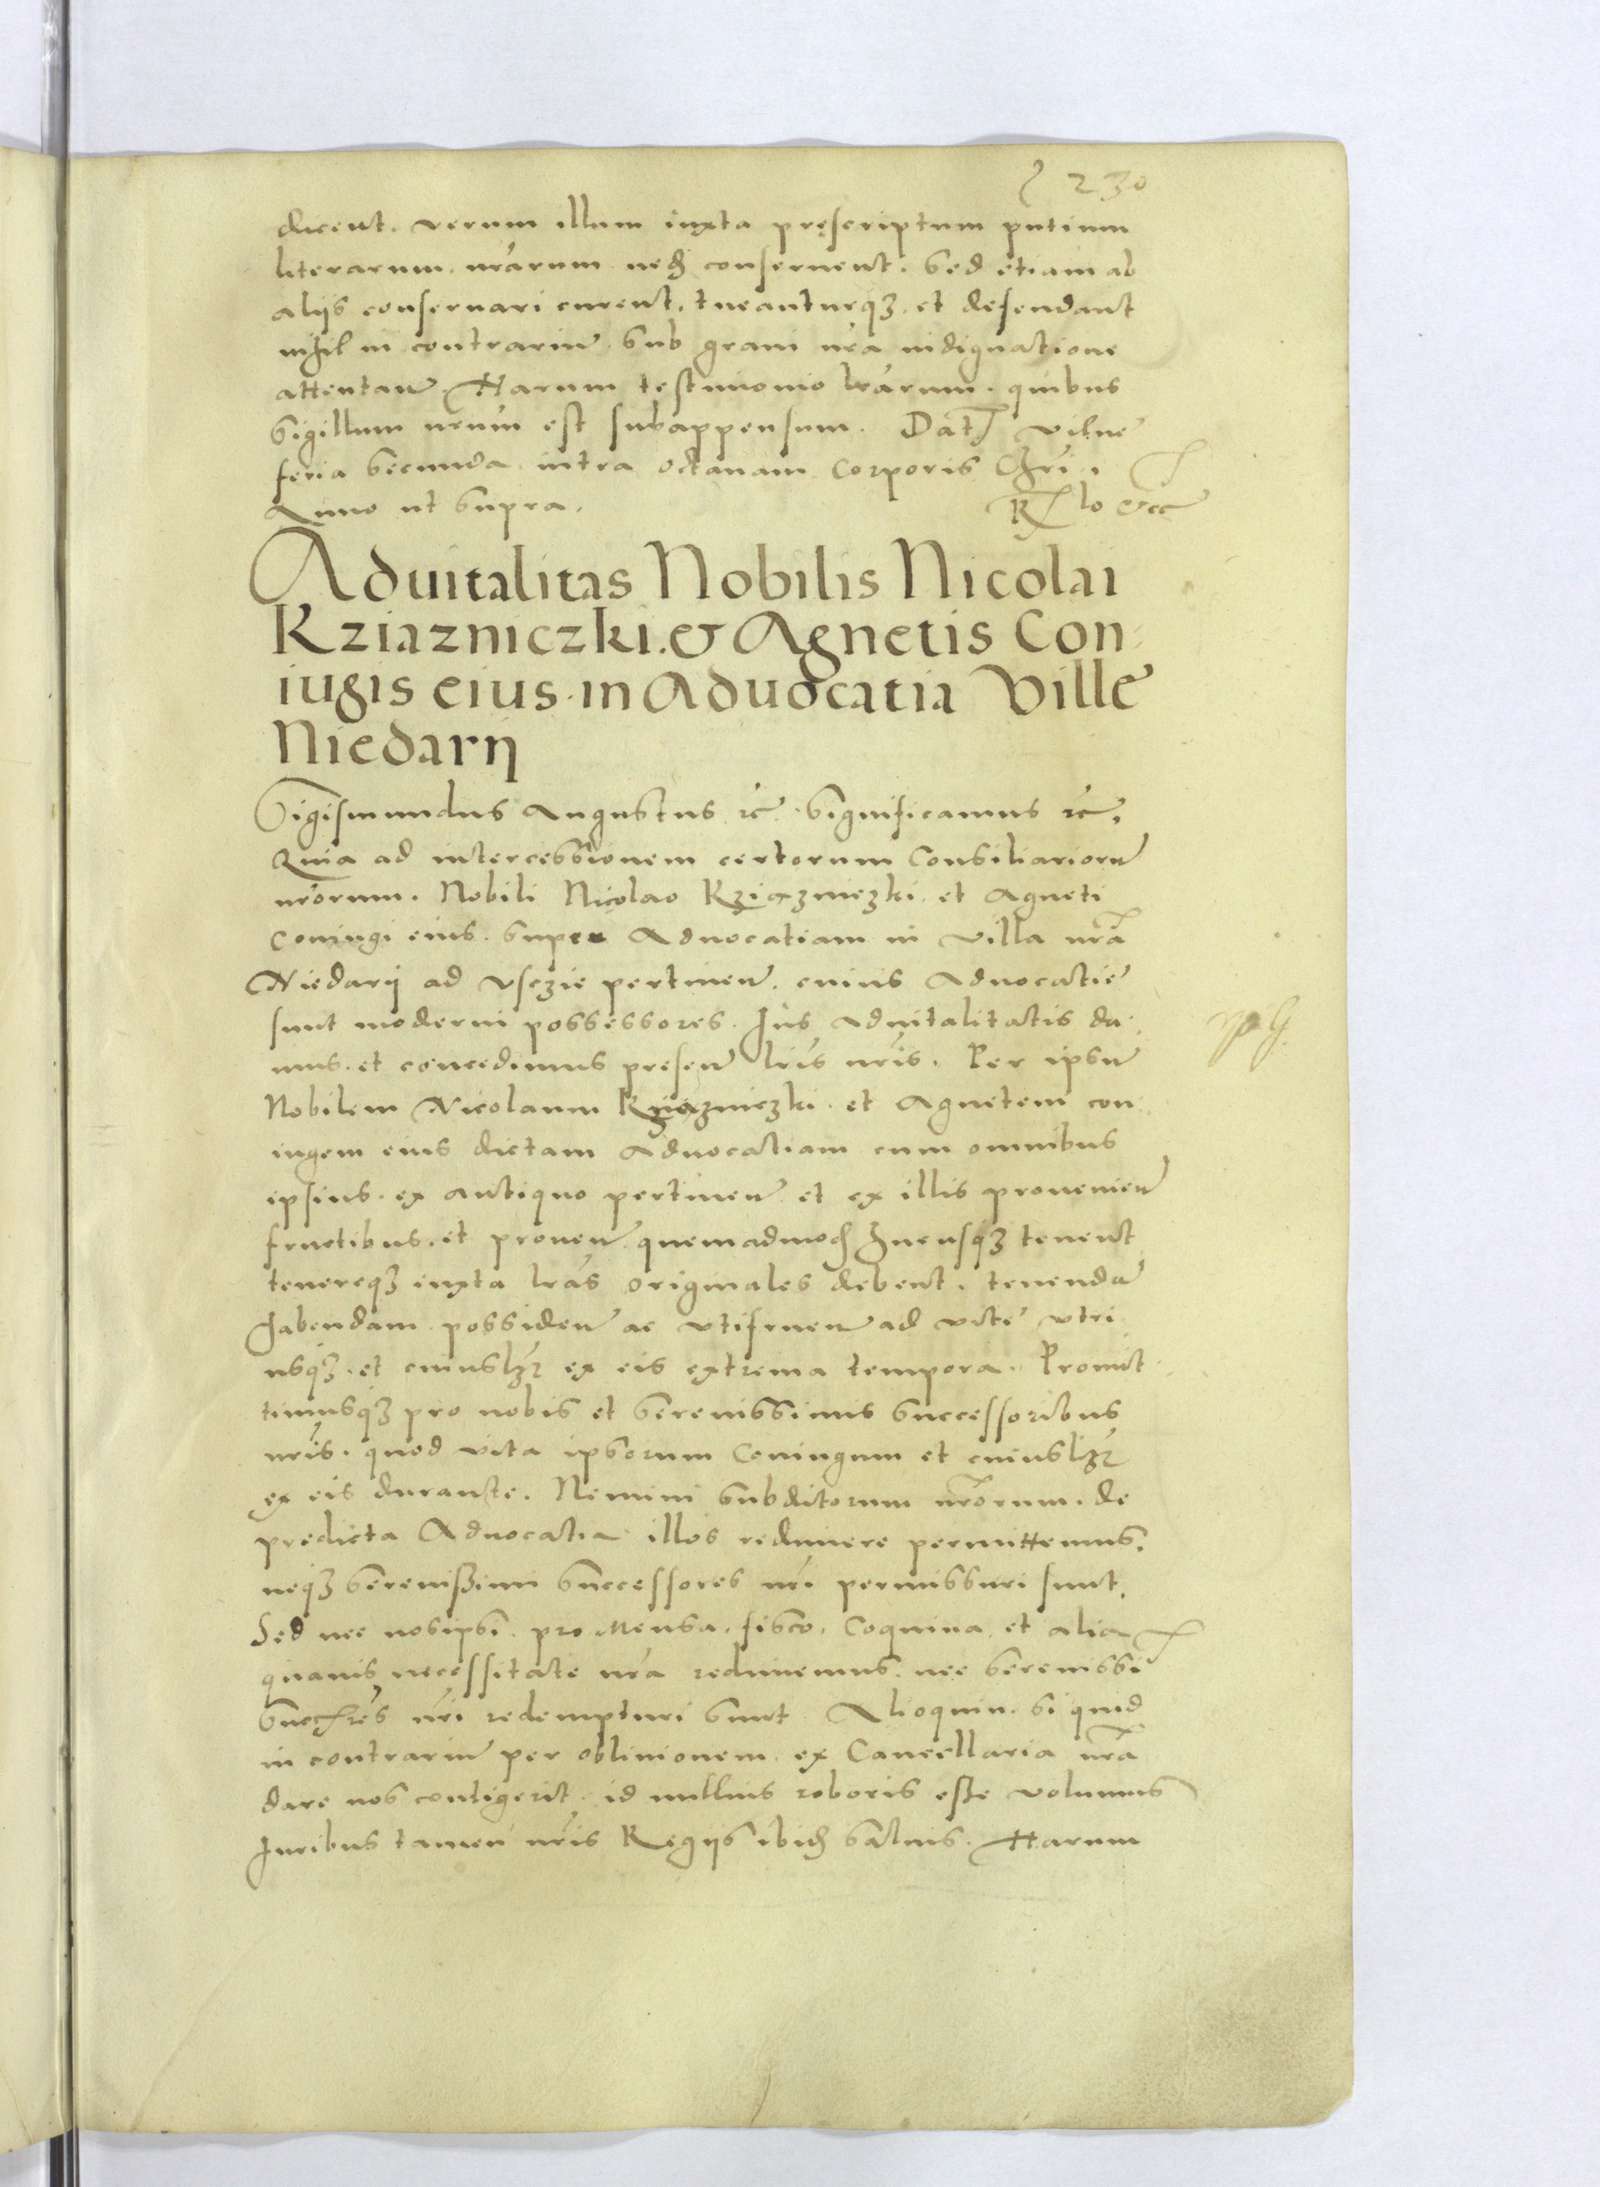 230
dicent. verum illum iuxta pręscriptum pñtium
literarum. nr̃arum. nedũ conseruent. Sed etiam ab
aliis conseruari curent. tueanturq3. et defendant
nihil in contrariũ. Sub graui nr̃a indignatione
attentan̄. Harum testimonio lr̃arum. quibus
Sigillum nr̃um est subappensum. Dat̃ Vilnę
feria Secunda. intra octauam Corporis Chr̃i.
Anno ut Supra.
Aduitalitas Nobilis Nicolai
Kziazniczki. & Agnetis Con-
iugis eius. in Aduocatia Villę
Niedarij
Sigismundus Augustus rc̃. Significamus rc̃.
Quia ad intercessionem certorum Consiliariorũ
nr̃orum. Nobili Nicolao Kziazniczki. et Agneti
Coniugi eius. Super Aduocatiam in Villa nr̃a
Niedarij ad Usczie pertinen̄. cuius Aduocatię
sunt moderni possessores. Ius Aduitalitatis da-
mus. et concedimus presen̄ lr̃is nr̃is. Per ipsũ
Nobilem Nicolaum Kziazniczki. et Agnetem con-
iugem eius dictam Aduocatiam cum omnibus
ipsius. ex antiquo pertinen̄. et ex illis prouenien̄
fructibus. et prouen̄. quemadmodũ hucusq3 tenent
tenereq3 iuxta lr̃as originales debent. tenendã
habendam possiden̄ ac Utifruen̄ ad vitę Utri-
usq3. et cuiusl3r̃ ex eis extrema tempora. Promit-
timusq3 pro nobis et Serenissimis Successoribus
nr̃is. quod vita ipsorum Coniugum et cuiusl3r̃
ex eis durante. Nemini Subditorum nr̃orum. de
predicta Aduocatia illos redimere permittemus.
neq3 Serenißimi Successores nr̃i permissuri sunt.
Sed nec nosipsi. pro Mensa. fisco. Coquina. et alia
quauis necessitate nr̃a redimemus. nec Serenissi
Succr̃es nr̃i redempturi Sunt. Alioquin. Si quid
in contrariũ per obliuionem. ex Cancellaria nr̃a
dare nos contigerit. id nullius roboris eße volumus
Iuribus tamen nr̃is Regiis ibidẽ Saluis. Harum